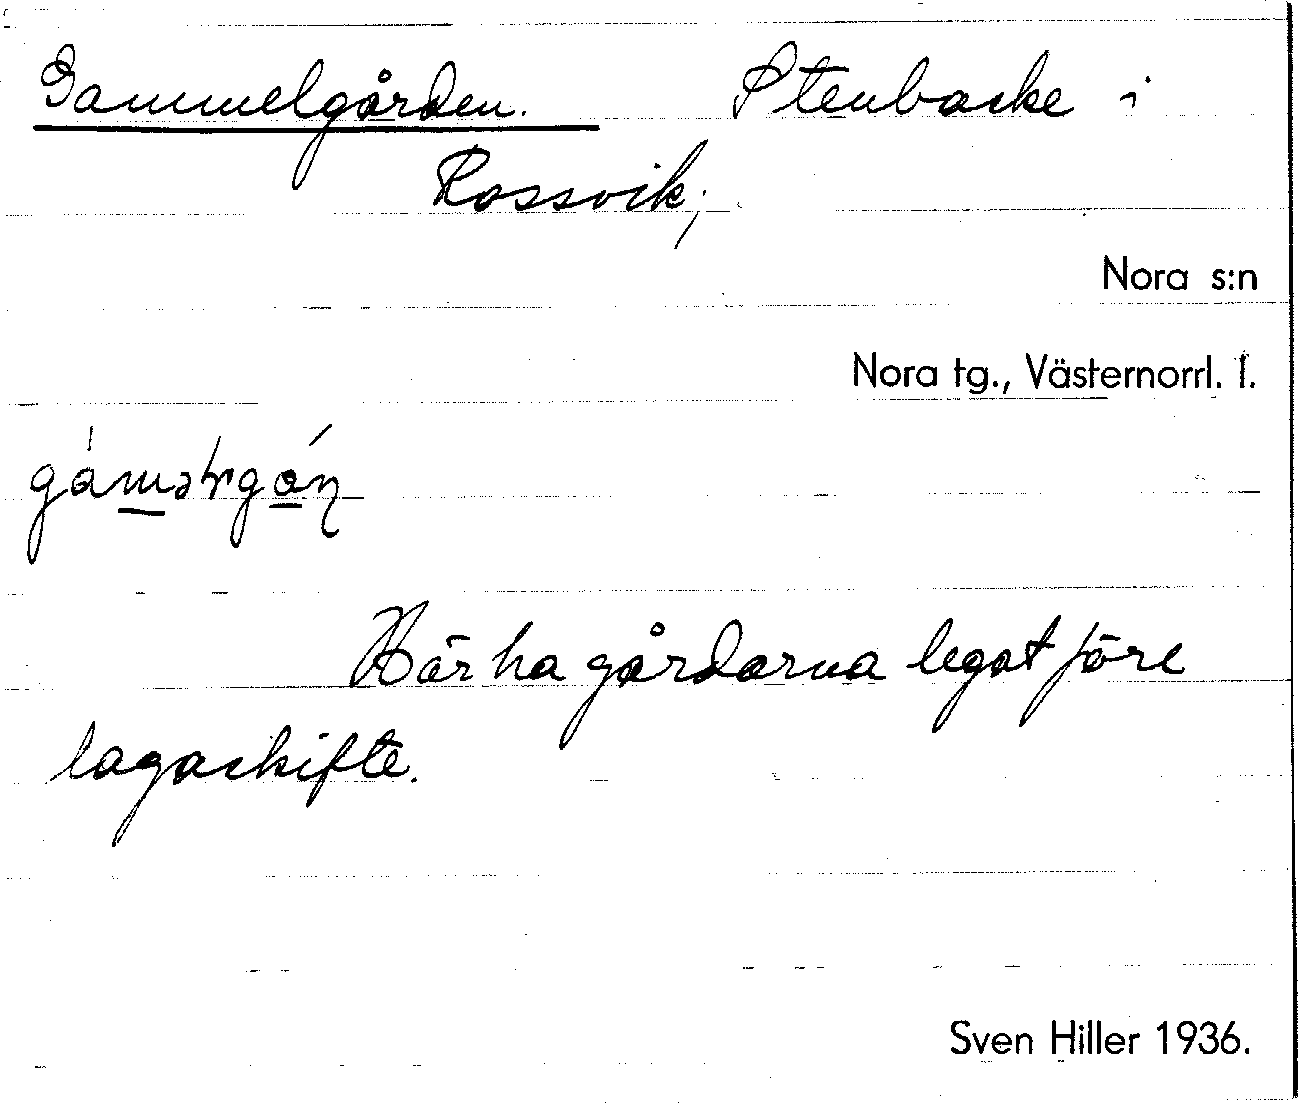 Gammelgården. Stenbacke i
Rossvik;
Nora s:n
Nora tg., Västernorrl. l.
Här ha gårdarna legat före
lagaskifte.
Sven Hiller 1936.